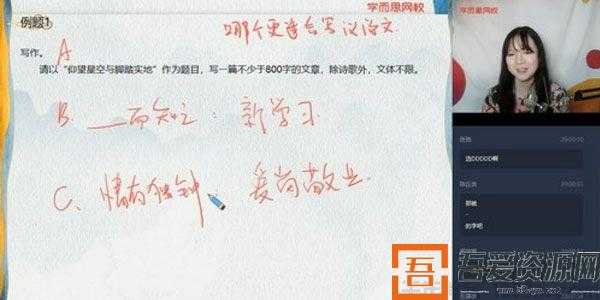 学而思网校
学而思网校
例题1
哪个更适合写议论文
写作。 A
请以“仰望星空与脚踏实地”作为题目，写一篇不少于800字的文章，除诗歌外，文体不限。
B. 而知 : 新学习
C、情有独钟 爱岗敬业
选DDDDD啊
那被
的字吧
吾 吾爱资源网